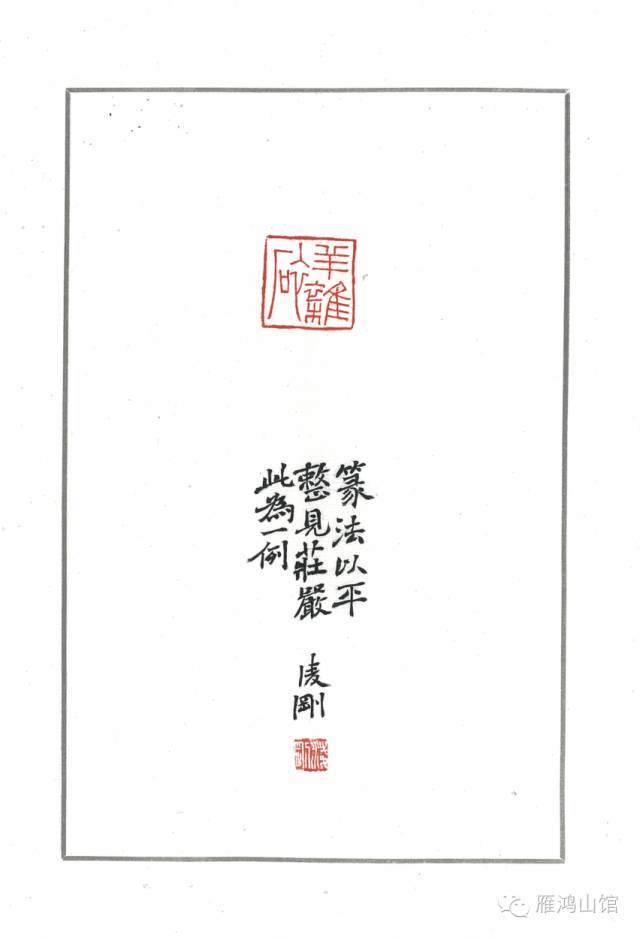 篆法以平
整見莊嚴
此為一例
剛
雁鸿山馆